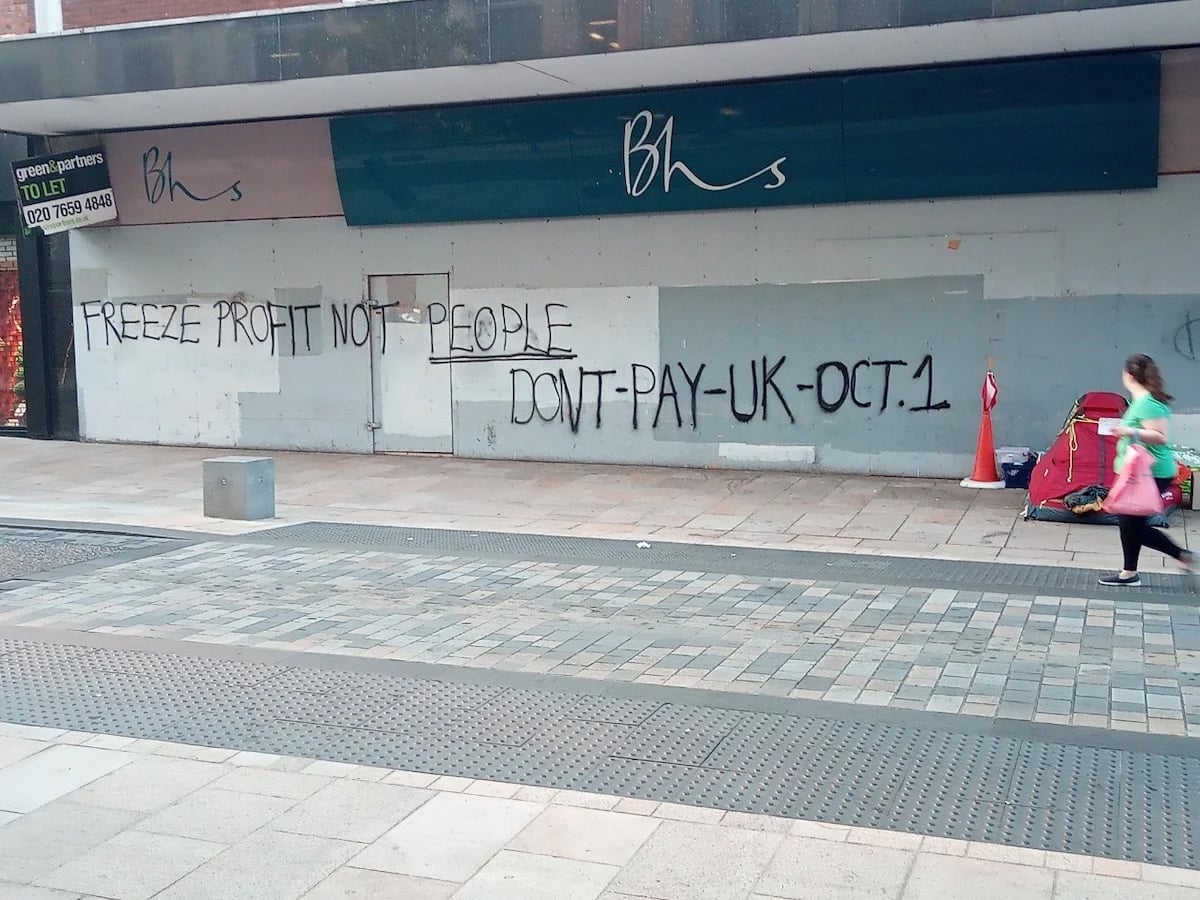 green&partners
TO LET
020 7659 4848
Bhs
Bhs
FREEZE PROFIT NOT PEOPLE
DONT-PAY-UK-OCT.1